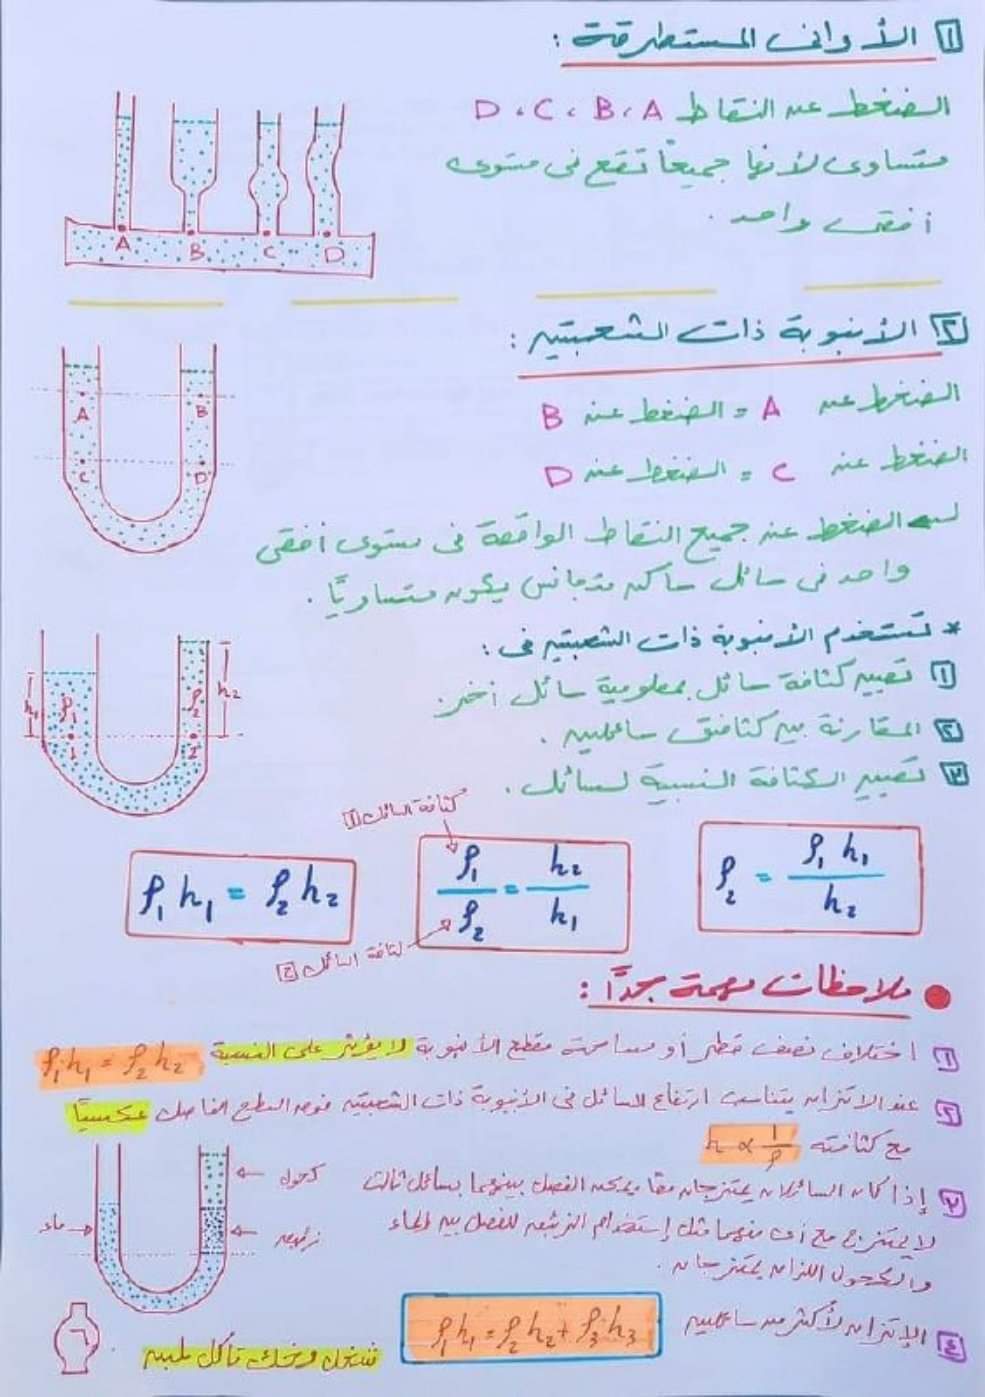 ١ الأواني المستطرقة :
الضغط عند النقاط D ، C ، B ، A
متساوي لأنها جميعاً تقع في مستوى
أفقي واحد .
A B C D
٢ الأنبوبة ذات الشعبتين :
الضغط عند A = الضغط عند B
الضغط عند C = الضغط عند D
A B
C D
الضغط عند جميع النقاط الواقعة في مستوى أفقي
واحد في سائل ساكن متجانس يكون متساويًا .
* تستخدم الأنبوبة ذات الشعبتين في :
١ تعيين كثافة سائل بمعلومية سائل آخر .
٢ المقارنة بين كثافتي سائلين .
٣ تعيين الكثافة النسبية لسائل .
h₁ ρ₁ ρ₂ h₂
1 2
كثافة السائل ١
ρ₁ h₁ = ρ₂ h₂
ρ₁/ρ₂ = h₂/h₁
ρ₂ = ρ₁ h₁/h₂
كثافة السائل ٢
ملاحظات مهمة جدًا :
١ اختلاف نصف قطر أو مساحة مقطع الأنبوبة لا يؤثر على النسبة ρ₁h₁ = ρ₂h₂
٢ عند الاتزان يتناسب ارتفاع السائل في الأنبوبة ذات الشعبتين فوق السطح الفاصل عكسيًا
مع كثافته h ∝ 1/ρ
٣ إذا كان السائلان يمتزجان معًا يمكن الفصل بينهما بسائل ثالث
لا يمتزج مع أي منهما مثل إستخدام الزئبق للفصل بين الماء
والكحول اللذان يمتزجان .
كحول
ماء
زئبق
٤ الإتزان لأكثر من سائلين ρ₁h₁ = ρ₂h₂ + ρ₃h₃